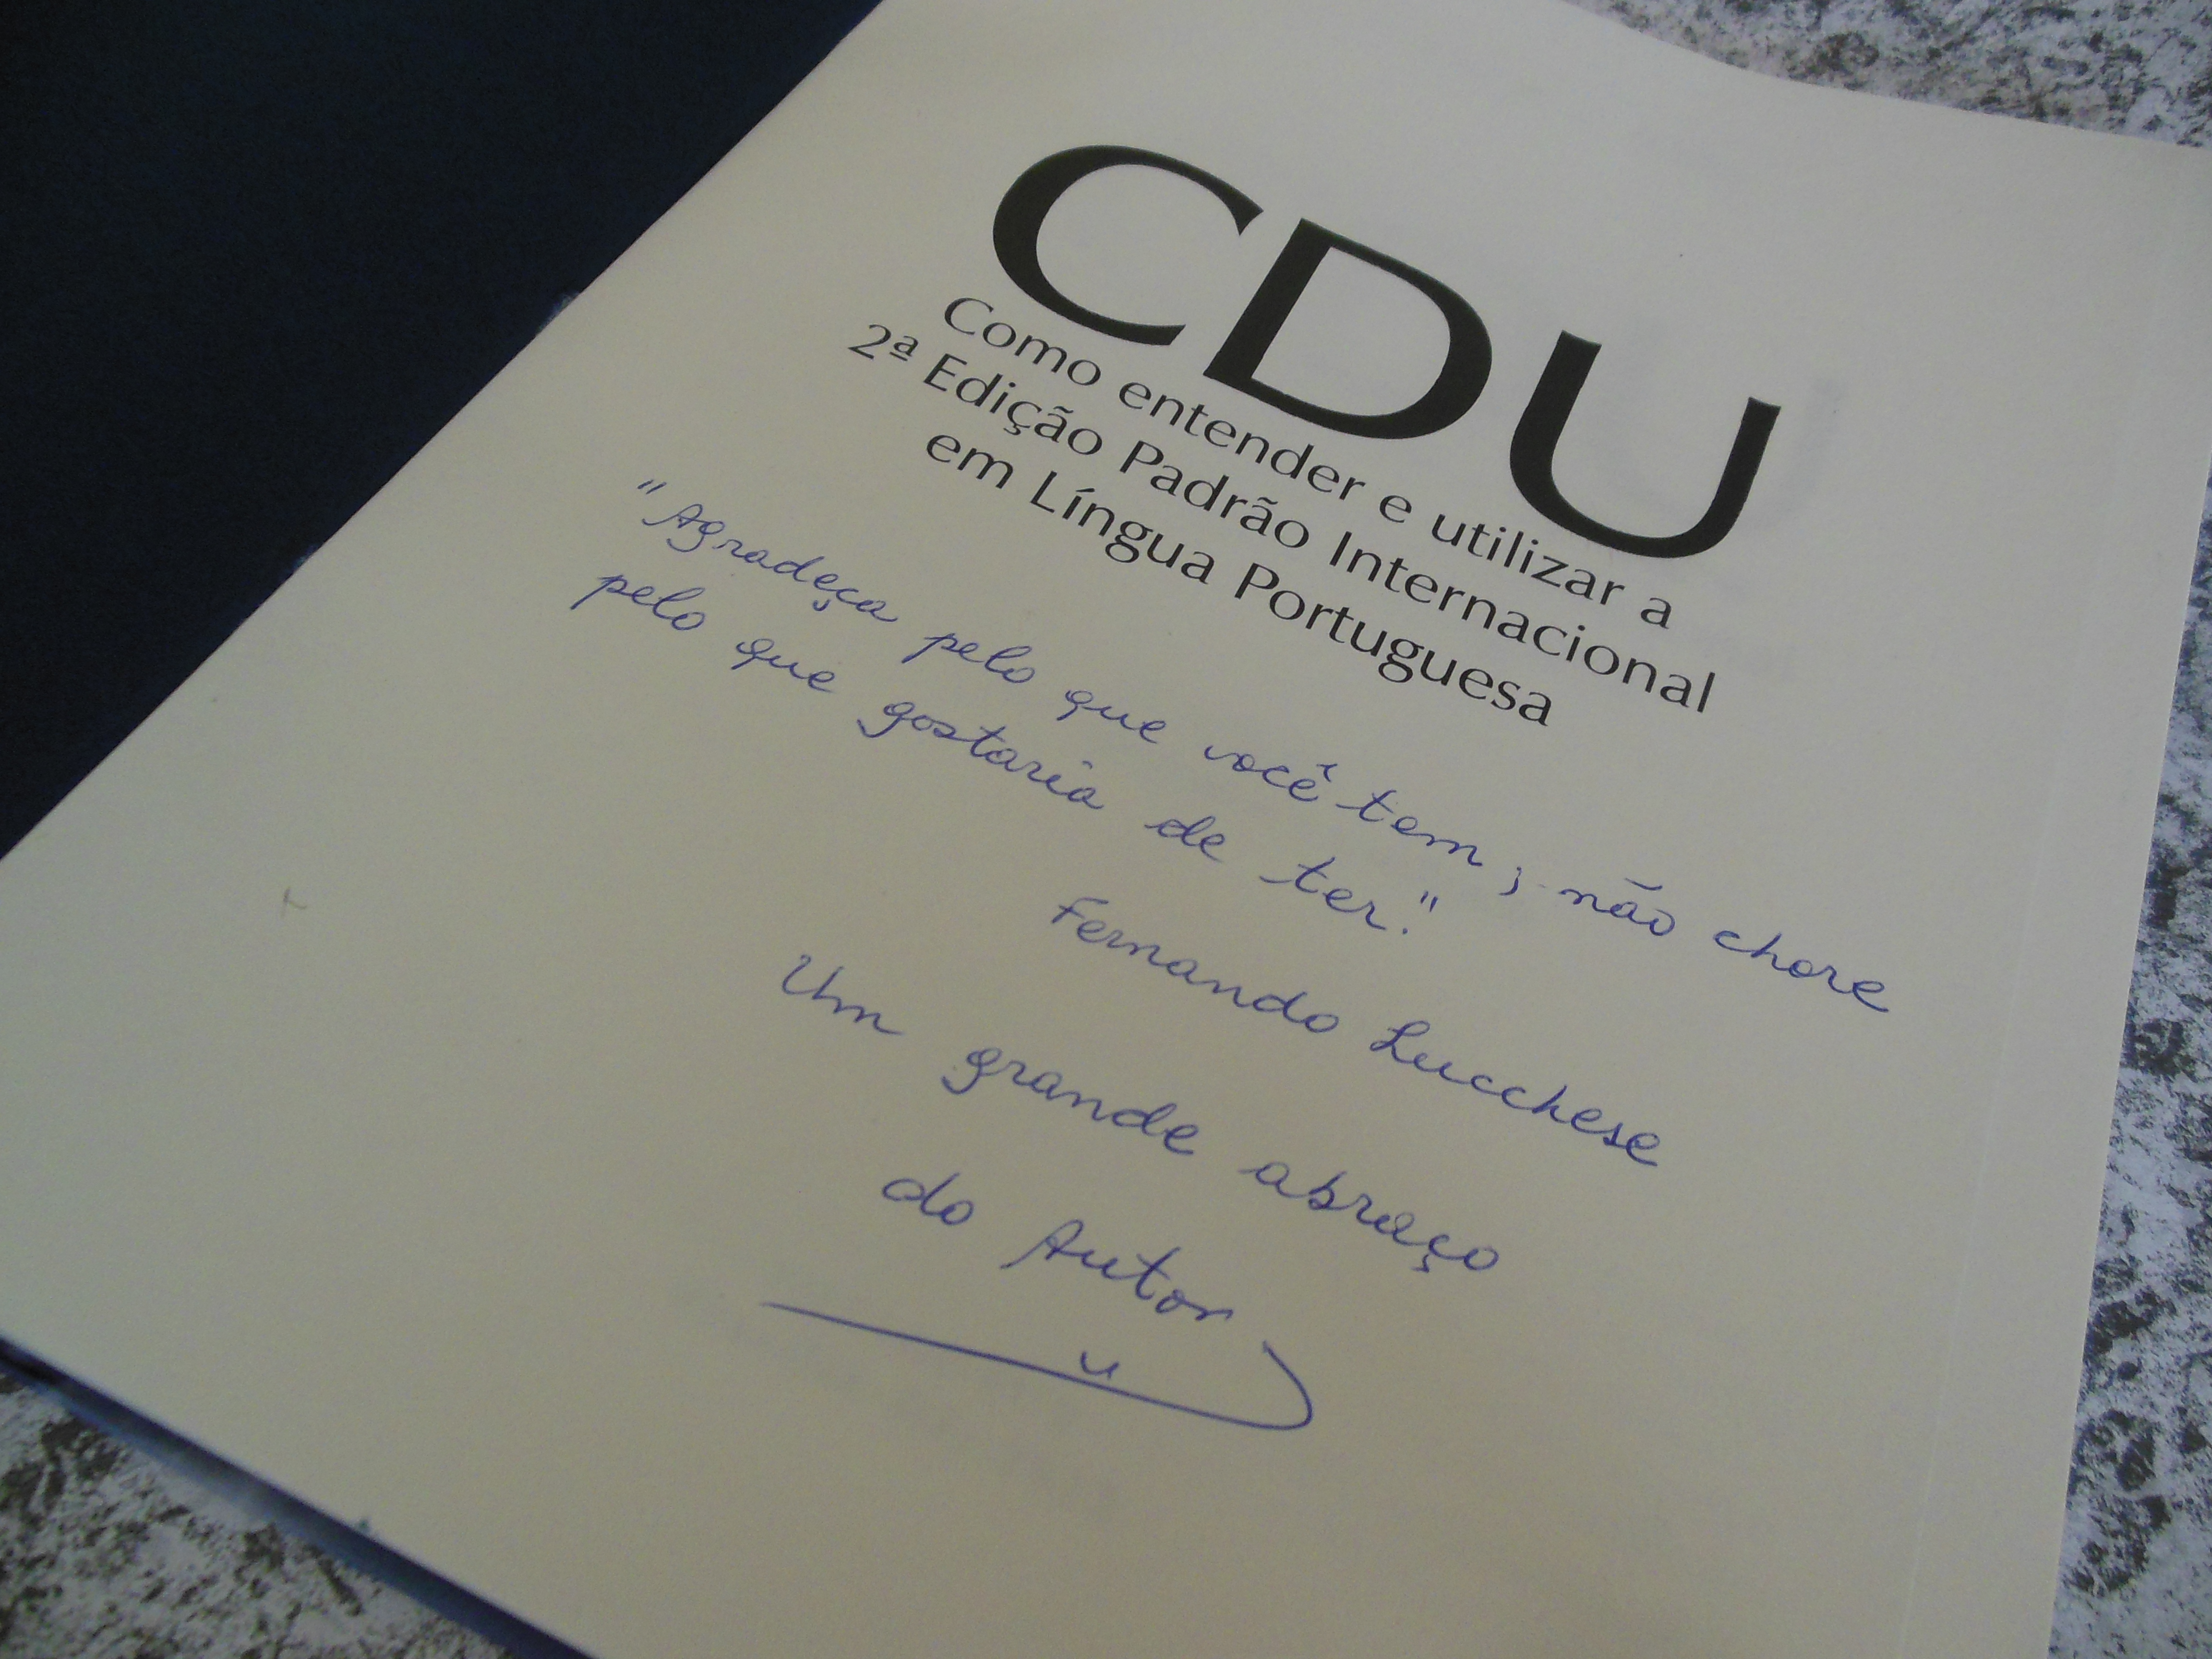 CDU
Como entender e utilizar a
2ª Edição Padrão Internacional
em Língua Portuguesa
"Agradeça pelo que você tem; não chore
pelo que gostaria de ter."
Fernando Lucchese
Um grande abraço
do Autor